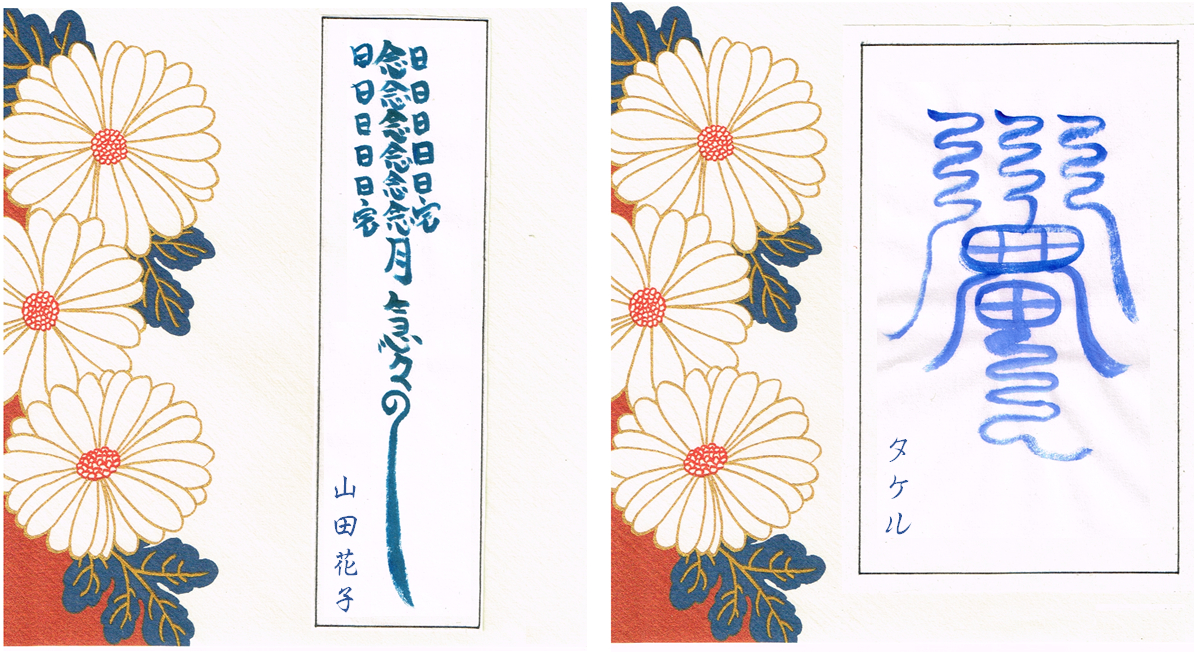 日日日日日宅
念念念念念念月
日日日日日宅
山田花子
タケル